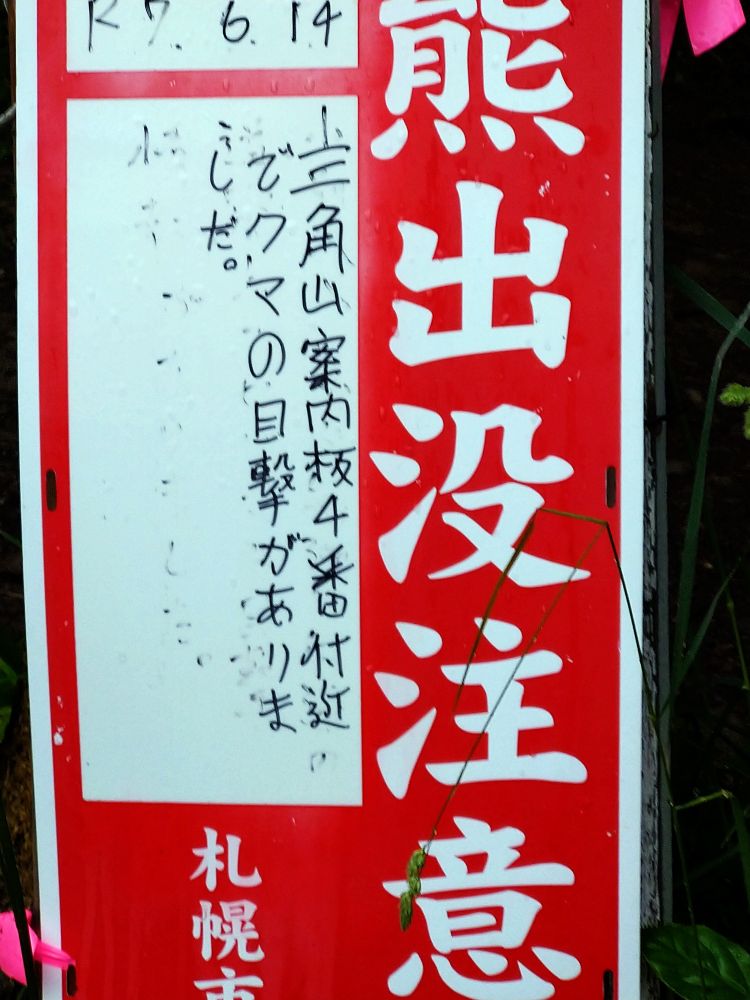 熊出没注意
R7. 6. 14
三角山案内板4番付近
でクマの目撃がありま
した。
札幌市